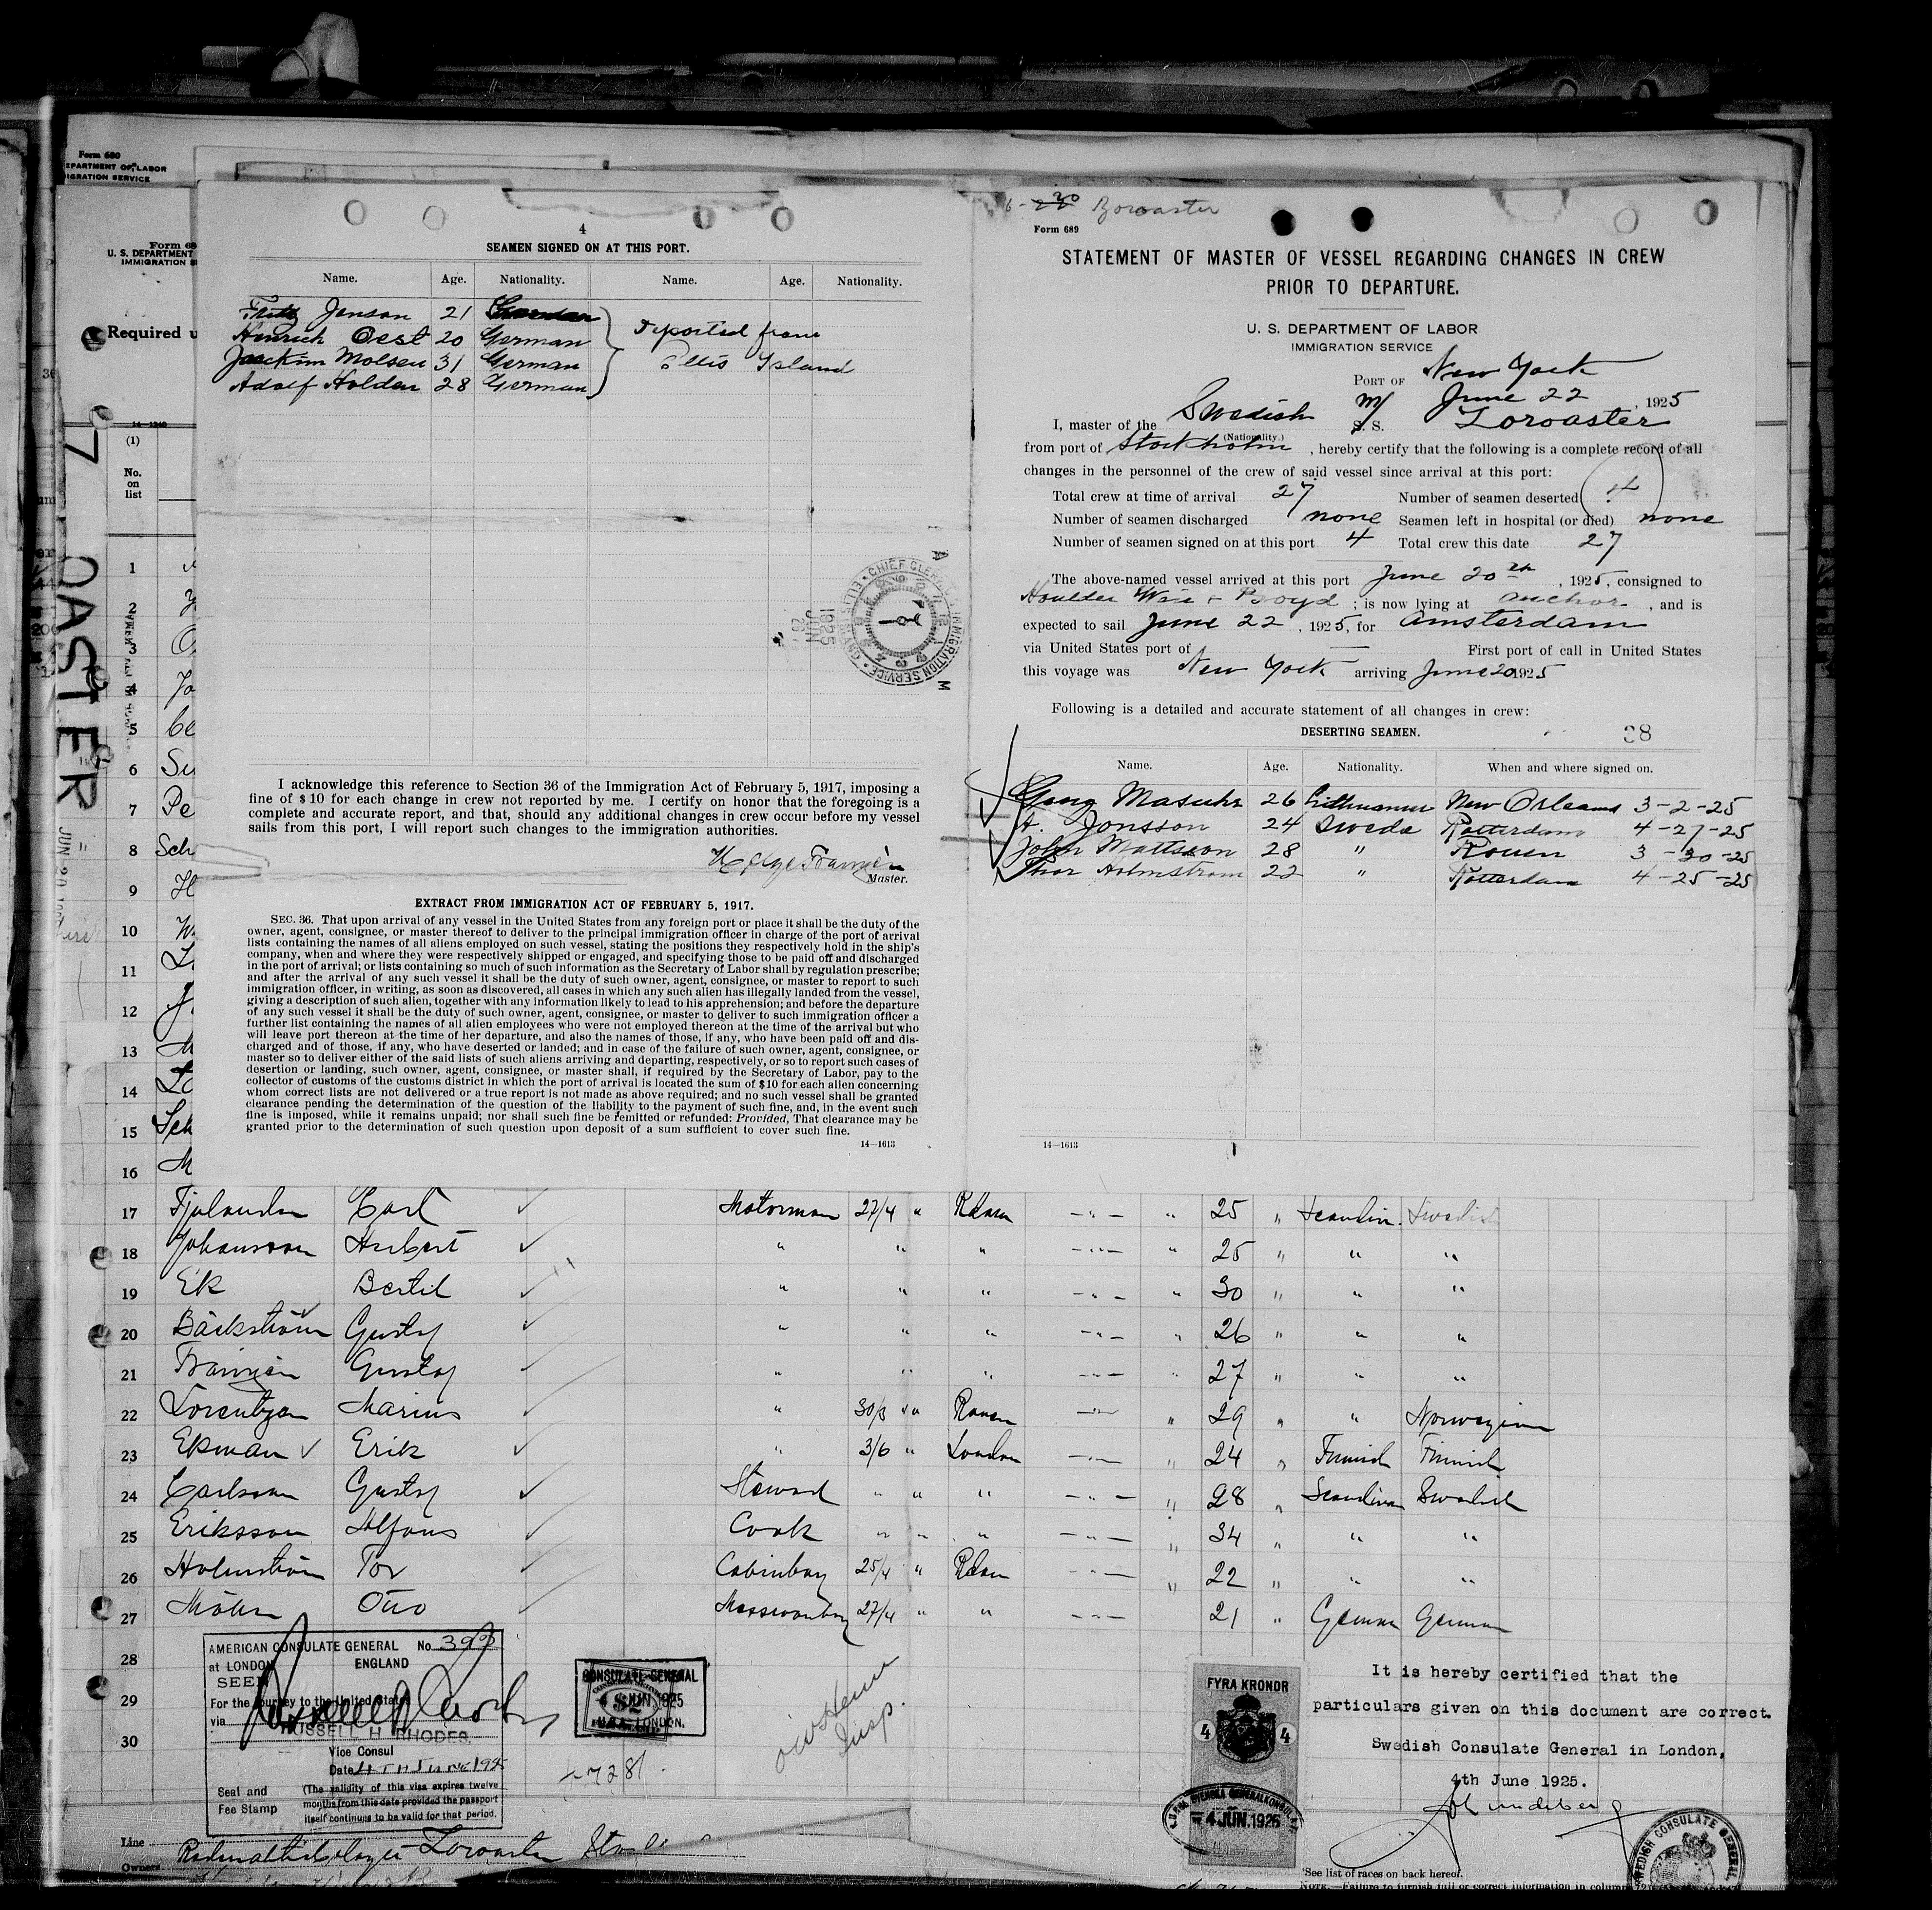 Form 680
DEPARTMENT OF LABOR
IMMIGRATION SERVICE
U. S. DEPARTMENT
IMMIGRATION
Required u
14-1240
(1)
No.
on
list
OASTER
4
SEAMEN SIGNED ON AT THIS PORT.
Name. Age. Nationality. Name. Age. Nationality.
Fritz Jenson 21
Hinrich Oest 20 German
Joackim Molsen 31 German
Adolf Holden 28 German
Deported from
Ellis Island
I acknowledge this reference to Section 36 of the Immigration Act of February 5, 1917, imposing a
fine of $10 for each change in crew not reported by me. I certify on honor that the foregoing is a
complete and accurate report, and that, should any additional changes in crew occur before my vessel
sails from this port, I will report such changes to the immigration authorities.
Helge Framén
Master.
EXTRACT FROM IMMIGRATION ACT OF FEBRUARY 5, 1917.
SEC. 36. That upon arrival of any vessel in the United States from any foreign port or place it shall be the duty of the
owner, agent, consignee, or master thereof to deliver to the principal immigration officer in charge of the port of arrival
lists containing the names of all aliens employed on such vessel, stating the positions they respectively hold in the ship's
company, when and where they were respectively shipped or engaged, and specifying those to be paid off and discharged
in the port of arrival; or lists containing so much of such information as the Secretary of Labor shall by regulation prescribe;
and after the arrival of any such vessel it shall be the duty of such owner, agent, consignee, or master to report to such
immigration officer, in writing, as soon as discovered, all cases in which any such alien has illegally landed from the vessel,
giving a description of such alien, together with any information likely to lead to his apprehension; and before the departure
of any such vessel it shall be the duty of such owner, agent, consignee, or master to deliver to such immigration officer a
further list containing the names of all alien employees who were not employed thereon at the time of the arrival but who
will leave port thereon at the time of her departure, and also the names of those, if any, who have been paid off and dis-
charged and of those, if any, who have deserted or landed; and in case of the failure of such owner, agent, consignee, or
master so to deliver either of the said lists of such aliens arriving and departing, respectively, or so to report such cases of
desertion or landing, such owner, agent, consignee, or master shall, if required by the Secretary of Labor, pay to the
collector of customs of the customs district in which the port of arrival is located the sum of $10 for each alien concerning
whom correct lists are not delivered or a true report is not made as above required; and no such vessel shall be granted
clearance pending the determination of the question of the liability to the payment of such fine, and, in the event such
fine is imposed, while it remains unpaid; nor shall such fine be remitted or refunded: Provided, That clearance may be
granted prior to the determination of such question upon deposit of a sum sufficient to cover such fine.
14-1613
Zoroaster
Form 689
STATEMENT OF MASTER OF VESSEL REGARDING CHANGES IN CREW
PRIOR TO DEPARTURE.
U. S. DEPARTMENT OF LABOR
IMMIGRATION SERVICE
PORT OF New York
June 22, 1925
I, master of the Swedish M/ S. S. Zoroaster
(Nationality.)
from port of Stockholm, hereby certify that the following is a complete record of all
changes in the personnel of the crew of said vessel since arrival at this port:
Total crew at time of arrival 27 Number of seamen deserted 4
Number of seamen discharged none Seamen left in hospital (or died) none
Number of seamen signed on at this port 4 Total crew this date 27
The above-named vessel arrived at this port June 20th, 1925, consigned to
Houlder Weir & Boyd; is now lying at anchor, and is
expected to sail June 22, 1925, for Amsterdam
via United States port of — First port of call in United States
this voyage was New York arriving June 20 1925
Following is a detailed and accurate statement of all changes in crew:
DESERTING SEAMEN. 38
Name. Age. Nationality. When and where signed on.
Georg Masuhr 26 New Orleans 3-2-25
A. Jonsson 24 Swede Rotterdam 4-27-25
John Mattsson 28 " Rouen 3-30-25
Thor Holmstrom 22 " Rotterdam 4-25-25
14-1613
17 Carl Motorman 27/4 " Rdam 25 " Scandin. Swedish
18 Johansson Herbert " " " 25 " " "
19 Ek Bertil " " " 30 " " "
20 Bäckström Gustaf " " " 26 " " "
21 Framén Gustaf " " " 27 " " "
22 Lorentzen Marius " 30/3 " Rouen 29 " " Norwegian
23 Ekman Erik " 3/6 " London 24 " Finnish Finnish
24 Carlsson Gustaf Steward " " " 28 " Scandinav Swedish
25 Eriksson Alfons Cook " " " 34 " " "
26 Holmström Tor Cabinboy 25/4 " Rdam 22 " " "
27 Möhn Otto Messroomboy 27/4 " " 21 " German German
28
29
30
AMERICAN CONSULATE GENERAL No.
at LONDON ENGLAND
SEEN
For the journey to the United States
via
RUSSELL H. RHODES.
Vice Consul
Date 4TH June 1925
Seal and
Fee Stamp
(The validity of this visa expires twelve
months from this date provided the passport
itself continues to be valid for that period.
CONSULATE GENERAL
4 JUN 1925
U.S.A. LONDON.
FYRA KRONOR
4 4
4 JUN. 1925
It is hereby certified that the
particulars given on this document are correct.
Swedish Consulate General in London,
4th June 1925.
SWEDISH CONSULATE GENERAL
Line
Owners
See list of races on back hereof.